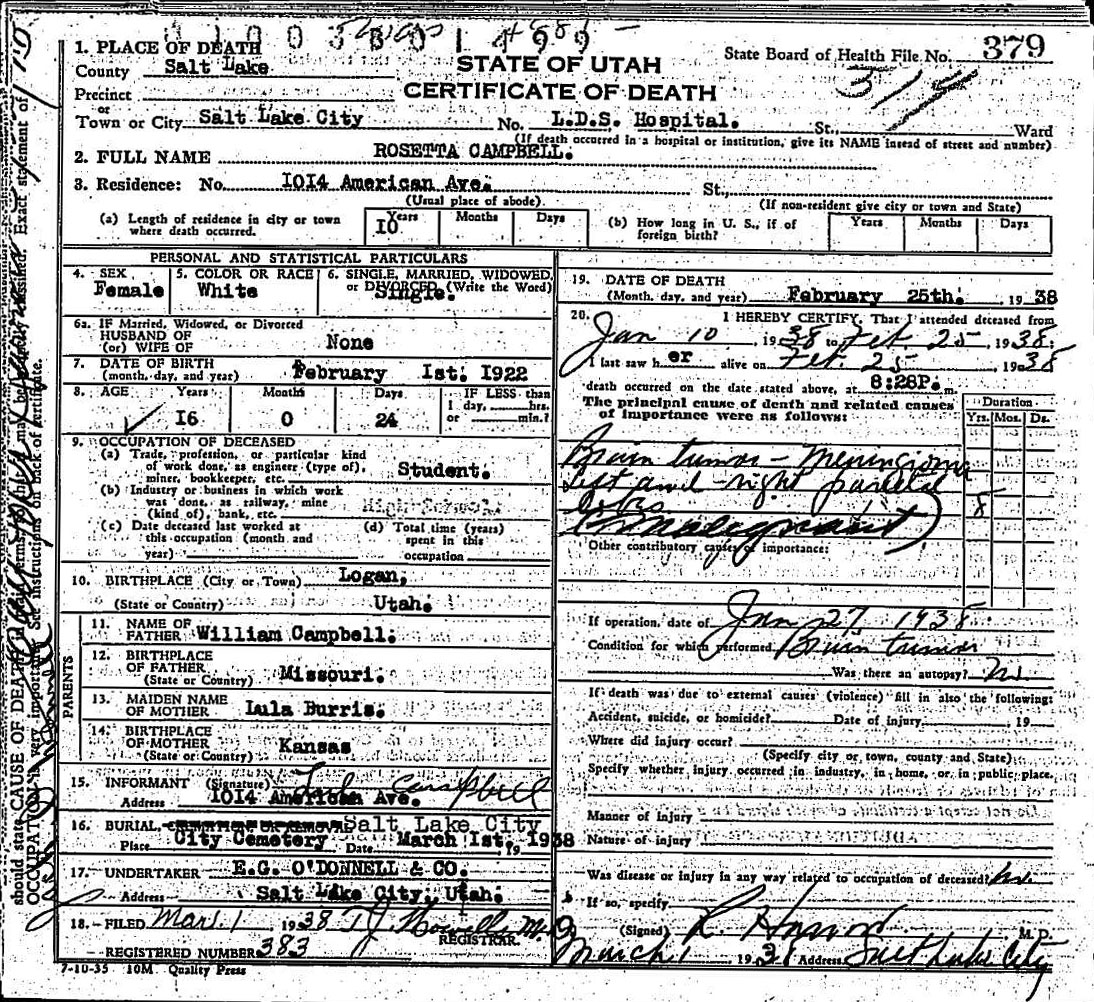 1. PLACE OF DEATH
County Salt Lake
Precinct
or
Town or City Salt Lake City No. L.D.S. Hospital. St., Ward
(If death occurred in a hospital or institution, give its NAME instead of street and number)
STATE OF UTAH
CERTIFICATE OF DEATH
State Board of Health File No. 379
2. FULL NAME ROSETTA CAMPBELL.
3. Residence: No. 1014 American Ave. St.,
(Usual place of abode) (If non-resident give city or town and State)
(a) Length of residence in city or town where death occurred. Years 10 Months Days
(b) How long in U. S., if of foreign birth? Years Months Days
PERSONAL AND STATISTICAL PARTICULARS
4. SEX Female
5. COLOR OR RACE White
6. SINGLE, MARRIED, WIDOWED, or DIVORCED (Write the Word) Single.
6a. IF Married, Widowed, or Divorced
HUSBAND OF
(or) WIFE OF None
7. DATE OF BIRTH
(month, day, and year) February 1st. 1922
8. AGE Years 16 Months 0 Days 24 IF LESS than 1 day, hrs. or min.?
9. OCCUPATION OF DECEASED
(a) Trade, profession, or particular kind of work done, as engineer (type of), miner, bookkeeper, etc. Student.
(b) Industry or business in which work was done, as railway, mine (kind of), bank, etc.
(c) Date deceased last worked at this occupation (month and year)
(d) Total time (years) spent in this occupation
10. BIRTHPLACE (City or Town) Logan,
(State or Country) Utah.
PARENTS
11. NAME OF FATHER William Campbell.
12. BIRTHPLACE OF FATHER
(State or Country) Missouri.
13. MAIDEN NAME OF MOTHER Lula Burris.
14. BIRTHPLACE OF MOTHER
(State or Country) Kansas
15. INFORMANT (Signature) Campbell
Address 1014 American Ave.
16. BURIAL, CREMATION OR REMOVAL Salt Lake City
Place City Cemetery Date March 1st, 1938
17. UNDERTAKER E.G. O'DONNELL & CO.
Address Salt Lake City, Utah.
18. FILED Mar. 1 1938 T.J. Howells M.D.
REGISTRAR.
REGISTERED NUMBER 383
7-10-35 10M Quality Press
19. DATE OF DEATH
(Month, day, and year) February 25th. , 1938
20. I HEREBY CERTIFY, That I attended deceased from
Jan 10 , 1938 to Feb. 25 , 1938;
I last saw her alive on Feb. 25 , 1938
death occurred on the date stated above, at 8:28P. m.
The principal cause of death and related causes of importance were as follows: Duration Yrs. Mos. Ds.
Brain tumor - Meningioma
left and right parietal
lobes 8
(malignant)
Other contributory causes of importance:
If operation, date of Jan 27 1938
Condition for which performed Brain tumor
Was there an autopsy? No.
If death was due to external causes (violence) fill in also the following:
Accident, suicide, or homicide? Date of injury , 19
Where did injury occur?
(Specify city or town, county and State)
Specify whether injury occurred in industry, in home, or in public place.
Manner of injury
Nature of injury
Was disease or injury in any way related to occupation of deceased? No.
If so, specify
(Signed) M. D.
March 1 193 Address Salt Lake City
should state CAUSE OF DEATH
OCCUPATION is very important. See instructions on back of certificate.
Exact statement of